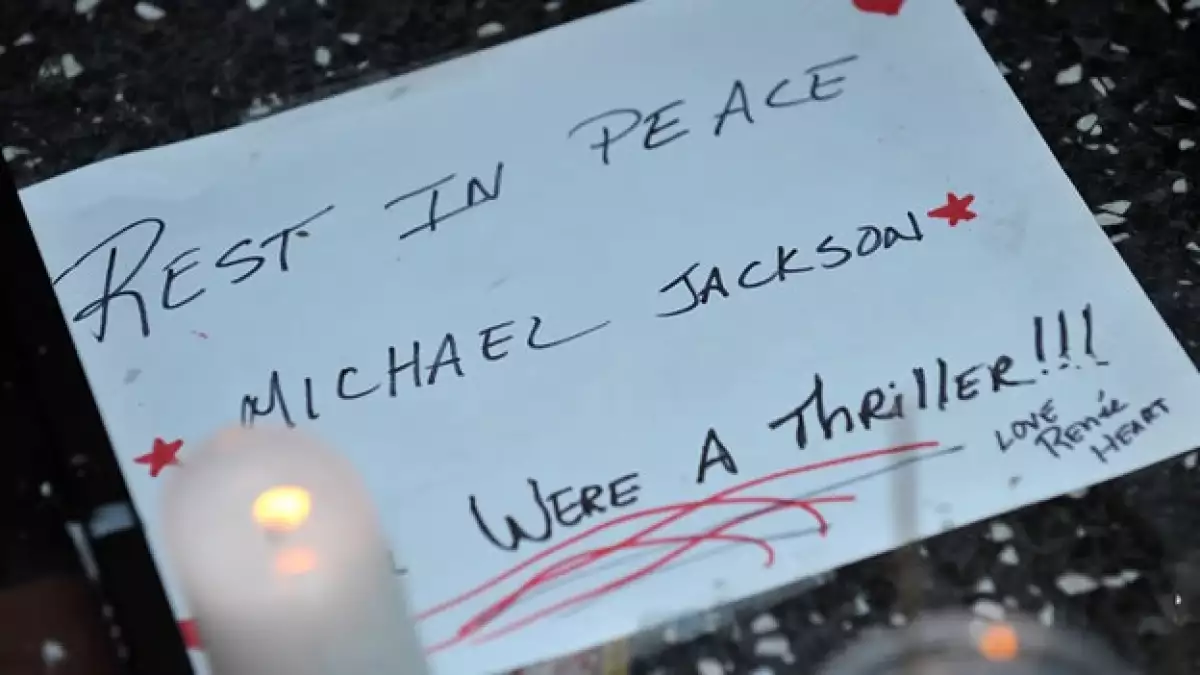 REST IN PEACE
MICHAEL JACKSON
WERE A THRILLER!!!
LOVE
RENÉE
HEART